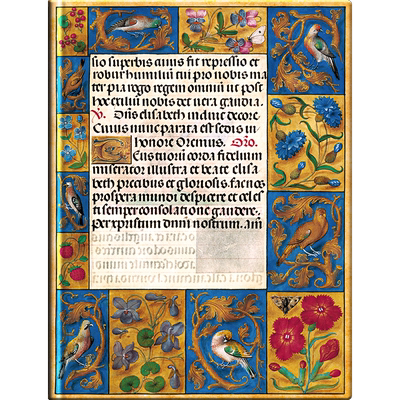 sio superbis cuius fit repressio et
robur humiliū tu pro nobis ma
ter pia rego regem omniū ut post
hoc exiliū nobis det vera gaudia.
V. Dn̄s elisabeth induit decore.
Cuius nunc parata est sedis in
honore Oremus. Oro.
Tuorū corda fidelium
miserator illustra et beate elisa
beth precibus et gloriosis fac nos
prospera mundi despicere et cel es
ti semper consolatione gaudere.
per xpistum dn̄m nostrum. am̄